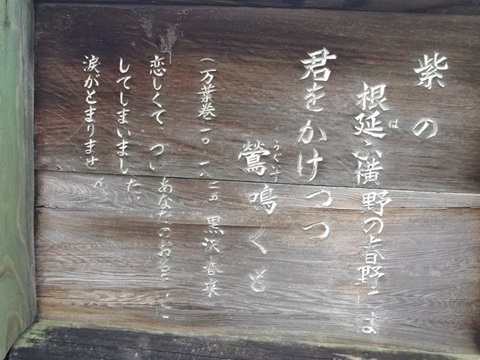 紫の
根延ふ横野の春野には
君をかけつつ
鶯鳴くも
(万葉巻一〇 一八二五 黒沢春来
恋しくて、ついあなたのお名 に
してしまいました。
涙がとまりません